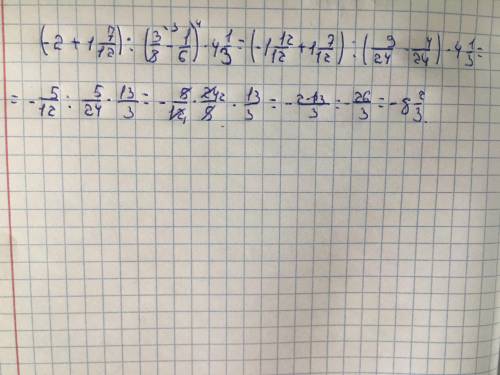 (-2 + 1 7/12) : (3/8 ³ - 1/6 ⁴) · 4 1/3 = (-1 12/12 + 1 7/12) : (9/24 - 4/24) · 4 1/3 =
= - 5/12 : 5/24 · 13/3 = - 5/12 · 24/5 · 13/3 = - 2·13/3 = - 26/3 = - 8 2/3